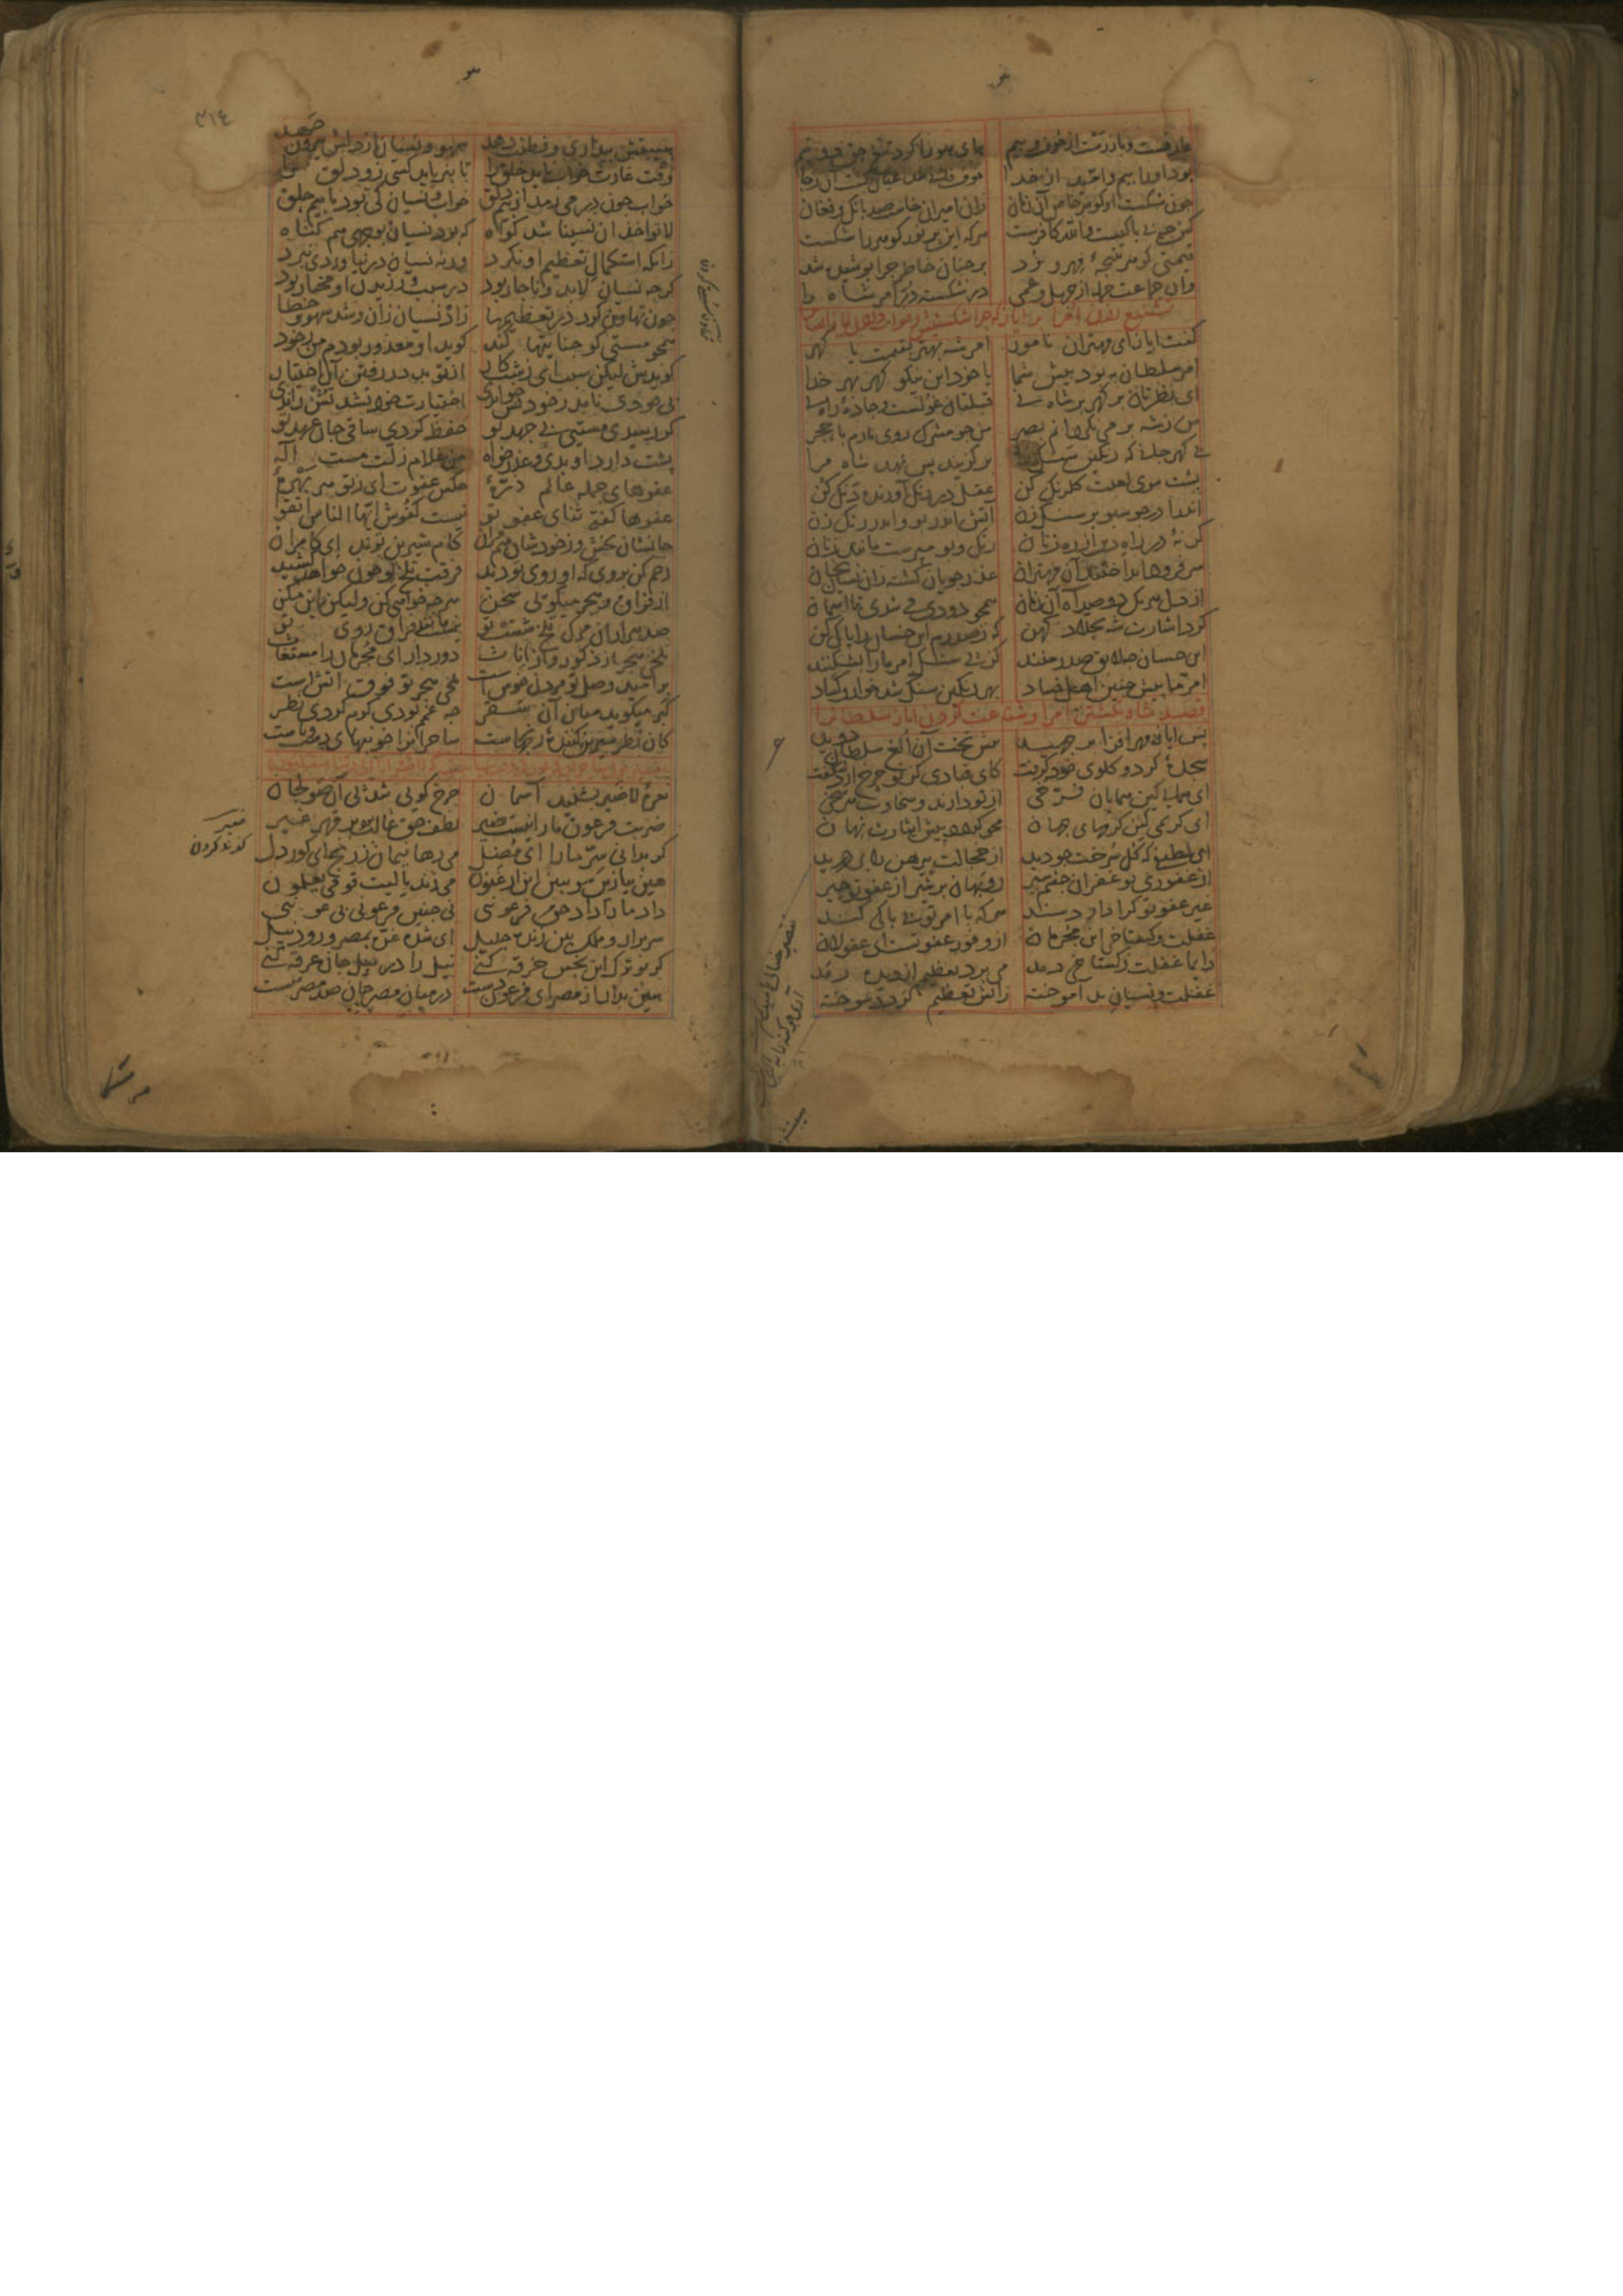 عارفست و باز رست از خوف و بیم های هو را کرد تیغ حق دو نیم
بود او را بیم و امید از خدا خوف فانی شد عیان گشت آن رجا
چون شکست او کوهر خاص آن زمان زان امیران خاست صد بانک و فغان
کین چه بی باکیست والله کافرست هر که این پر نور کوهر را شکست
قیمتی کوهر نتیجهٔ مهر و ود بر چنان خاطر چرا پوشیده شد
وان جماعت جمله از جهل و عمی در شکسته در امر شاه را
تشنیع زدن امرا بر ایاز که چرا شکستش و جواب دادن ایاز ایشانرا
کفت ایاز ای مهتران نامور امر شه بهتر بقیمت یا کهر
امر سلطان به بود پیش شما یا خود این نیکو کهر بهر خدا
ای نظرتان بر کهر بر شاه نی قبلتان غولست و جادهٔ راه نی
من ز شه بر می نکردانم بصر من چو مشرک روی نارم با حجر
بی کهر جانی که رنکین سنک راه بر کزیند پس نهد شاه مرا
پشت سوی لعبت کلرنک کن عقل در رنک آورنده دنک کن
اندرا در جو سبو بر سنک زن آتش اندر بو و اندر رنک زن
کر نهٔ در راه دین از ره زنان رنک و بو مپرست مانند زنان
سر فرو انداختند آن مهتران عذر جویان کشته زان نسیان بجان
از دل هر یک دو صد آه آن زمان همچو دودی می شدی تا آسمان
کرد اشارت شه بجلاد کهن که ز صدرم این خسان را پاک کن
این خسان چه لایق صدر منند کز پی سنک امر ما را بشکنند
امر ما پیش چنین اهل فساد بهر رنکین سنک شد خوار و کساد
قصد شاه بکشتن امرا و شفاعت کردن ایاز سلطان را
پس ایاز مهر افزا بر جهید پیش تخت آن الغ سلطان دوید
سجدهٔ کرد و کلوی خود کرفت کای قبادی کز تو چرخ آرد شکفت
ای همایی که همایان فرخی از تو دارند و سخاوت هر سخی
ای کریمی که کرمهای جهان محو کردد پیش ایثارت نهان
ای لطیفی که کل سرخت چو دید از خجالت پیرهن را بر درید
از غفوری تو غفران چشم سیر روبهان بر شیر از عفو تو چیر
غیر عفو تو کرا دارد سند هر که با امر تو بی باکی کند
غفلت و کستاخی این مجرمان از وفور عفو تست ای عفو لان
دایما غفلت ز کستاخی دمد می برد تعظیم از دیده رمد
غفلت و نسیان بد آموخته ز آتش تعظیم کردد سوخته
۳۱٤
هیبتش بیداری و فطنت دهد سهو و نسیان از دلش بیرون جهد
وقت غارت خواب ناید خلق را تا بنرباید کسی زو دلق را
خواب چون در می رمد از بیم دلق خواب و نسیان کی بود با بیم حلق
لا تواخذ ان نسینا شد کواه که بود نسیان بوجهی هم کناه
زانکه استکمال تعظیم او نکرد ورنه نسیان در نیاوردی نبرد
کرچه نسیان لابد و ناچار بود در سبب ورزیدن او مختار بود
چون تهاون کرد در تعظیمها زاد نسیان زان و شد سهو و خطا
همچو مستی کو جنایتها کند کوید او معذور بودم من بخود
کویدش لیکن سبب ای زشت کار از تو بد در رفتن آن اختیار
بی خودی نامد بخود تش خواندی اختیارت خود نشد تش راندی
کر رسیدی مستیی بی جهد تو حفظ کردی ساقی جان عهد تو
پشت دارد او بدی و عذر خواه من غلام زلت مست اله
عفوهای جمله عالم ذرهٔ عکس عفوت ای ز تو هر بهرهٔ
عفوها کفته ثنای عفو تو نیست کفوش ایها الناس اتقوا
جانشان بخش و ز خودشان هم مران کام شیرین تواند ای کامران
رحم کن بر وی که او روی تو دید فرقت تلخ تو چون خواهد کشید
از فراق و هجر میکویی سخن هر چه خواهی کن ولیکن این مکن
صد هزاران مرک تلخ شصت تو نیست مانند فراق روی تو
تلخی هجر از ذکور و از اناث دور دار ای مجرمان را مستغاث
بر امید وصل تو مردن خوش است تلخی هجر تو فوق آتش است
کبر میکوید میان آن سقر چه غمم بودی کرم کردی نظر
کان نظر شیرین کنندهٔ رنجهاست ساحران را خونبهای دست و پاست
نعرهٔ لا ضیر بشنید آسمان چرخ کویی شد پی آن صولجان
ضربت فرعون ما را نیست ضیر لطف حق غالب بود بر قهر غیر
کر بدانی سر ما را ای مضل می رهانیمان ز رنج ای کور دل
هین بیا زین سو ببین این ارغنون می زند یا لیت قومی یعلمون
داد ما را داد حق فرعونیی نی چنین فرعونیی بی عونیی
سر برار و ملک بین زنده جلیل ای شده غره بمصر و رود نیل
کر تو ترک این نجس خرقه کنی نیل را در نیل جان غرقه کنی
هین بدار از مصر ای فرعون دست در میان مصر جان صد مصر هست
ضیر
کزند کردن